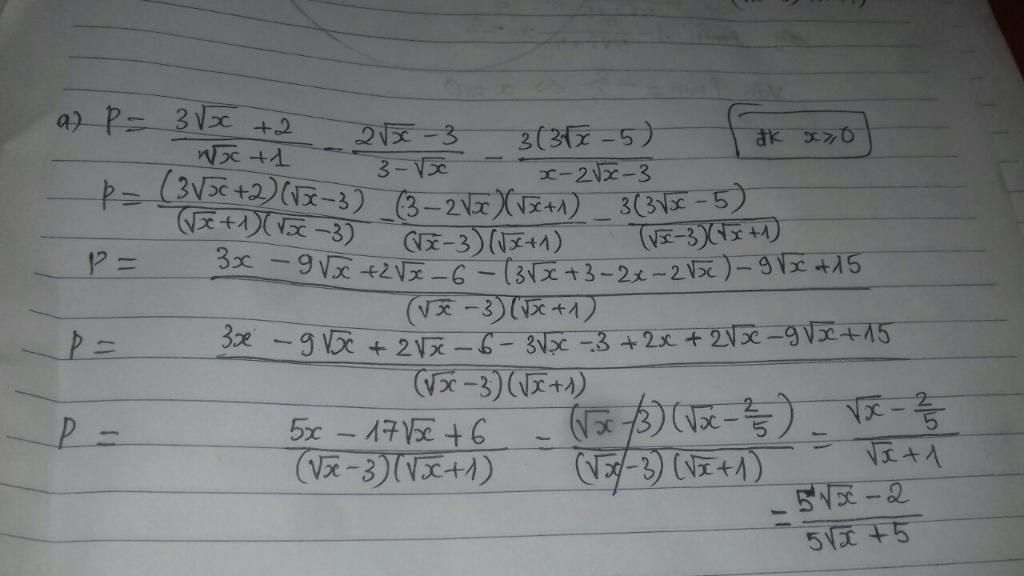 a) P = (3√x + 2)/(√x + 1) - (2√x - 3)/(3 - √x) - 3(3√x - 5)/(x - 2√x - 3) đk x ≥ 0
P = (3√x + 2)(√x - 3)/(√x + 1)(√x - 3) - (3 - 2√x)(√x + 1)/(√x - 3)(√x + 1) - 3(3√x - 5)/(√x - 3)(√x + 1)
P = 3x - 9√x + 2√x - 6 - (3√x + 3 - 2x - 2√x) - 9√x + 15/(√x - 3)(√x + 1)
P = 3x - 9√x + 2√x - 6 - 3√x - 3 + 2x + 2√x - 9√x + 15/(√x - 3)(√x + 1)
P = 5x - 17√x + 6/(√x - 3)(√x + 1) = (√x - 3)(√x - 2/5)/(√x - 3)(√x + 1) = (√x - 2/5)/(√x + 1)
= (5√x - 2)/(5√x + 5)